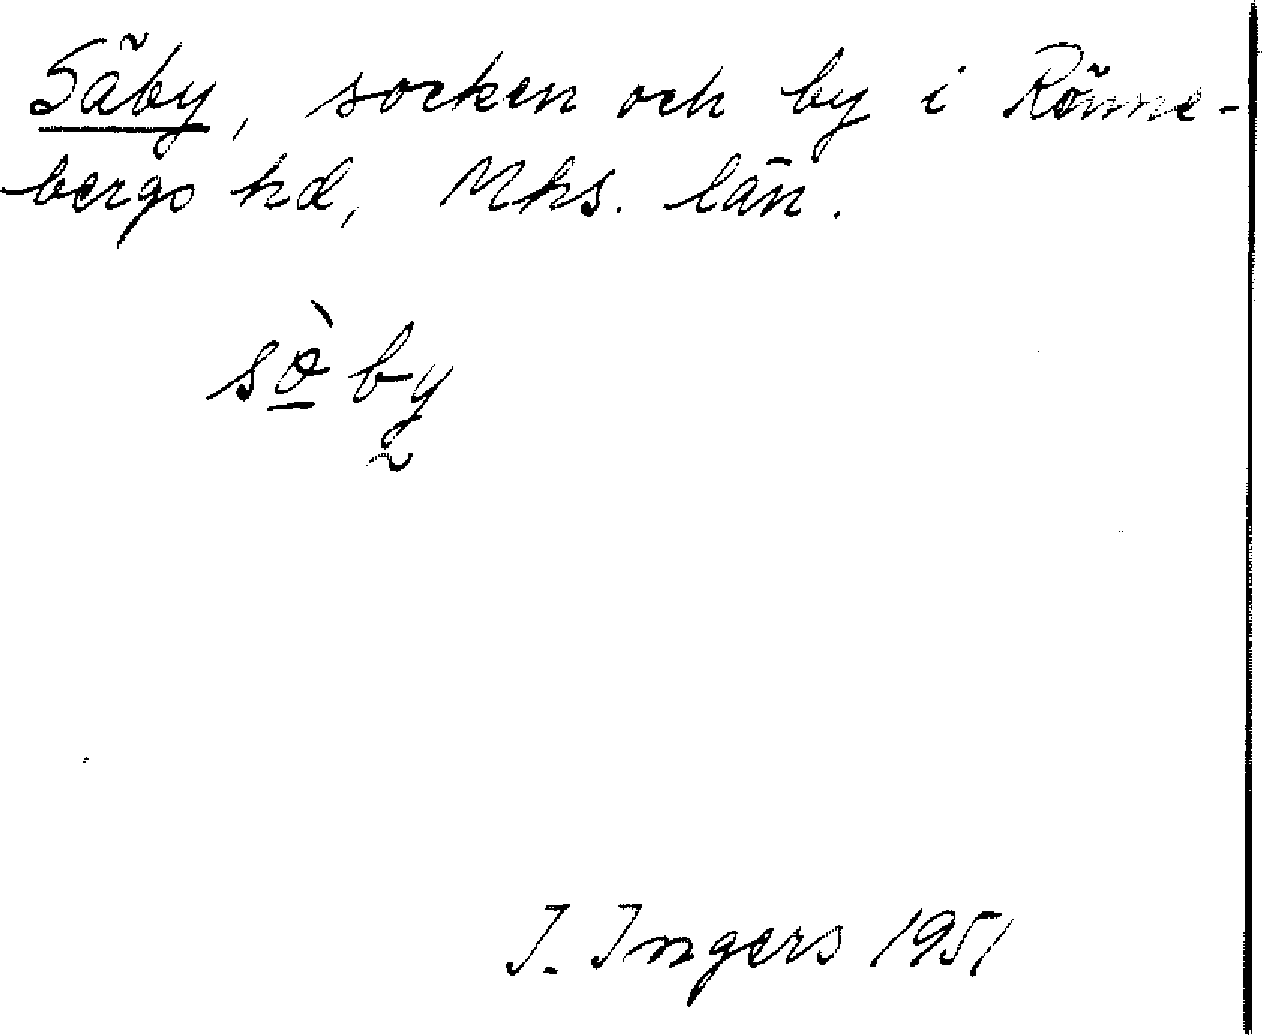 Säby, socken och by i Rönne-
bergs hd, Mhs. län.
sø̱̀by̰
I. Ingers 1951